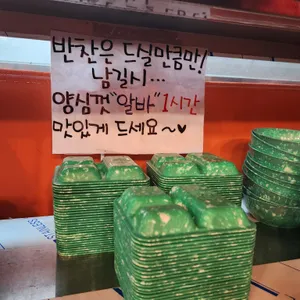 반찬은 드실만큼만!
남길시...
양심껏 "알바" 1시간
맛있게 드세요~♥
STAINLESS